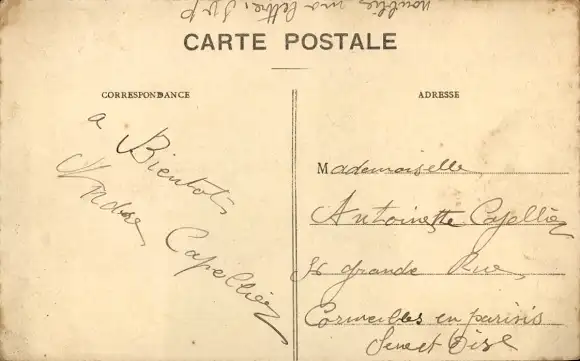 noubliez ma lettre, SVP
CARTE POSTALE
CORRESPONDANCE
a Bientôt
Andre Capellier
ADRESSE
Mademoiselle
Antoinette Capellier
grande Rue
Cormeilles en parisis
Seine et Oise